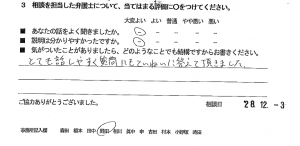 3 相談を担当した弁護士について、当てはまる評価に○をつけてください。
大変よい よい 普通 やや悪い 悪い
■ あなたの話をよく聞きましたか。
■ 説明は分かりやすかったですか。
■ 気がついたことがありましたら、どのようなことでも結構ですからお書きください。
とても話しやすく質問にもていねいに答えて頂きました。
ご協力ありがとうございました。
相談日 28.12.-3
事務所記入欄 森田 榎本 田中